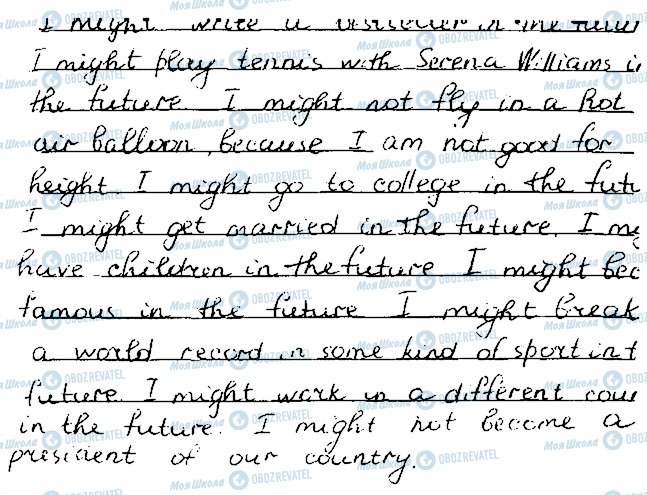 I might write a bestseller in the
I might play tennis with Serena Williams
the future. I might not fly in a hot
air balloon, because I am not good for
height I might go to college in the
I might get married in the future. I
have children in the future I might
famous in the future I might break
a world record in some kind of sport in
future. I might work in a different
in the future. I might not become a
president of our country.